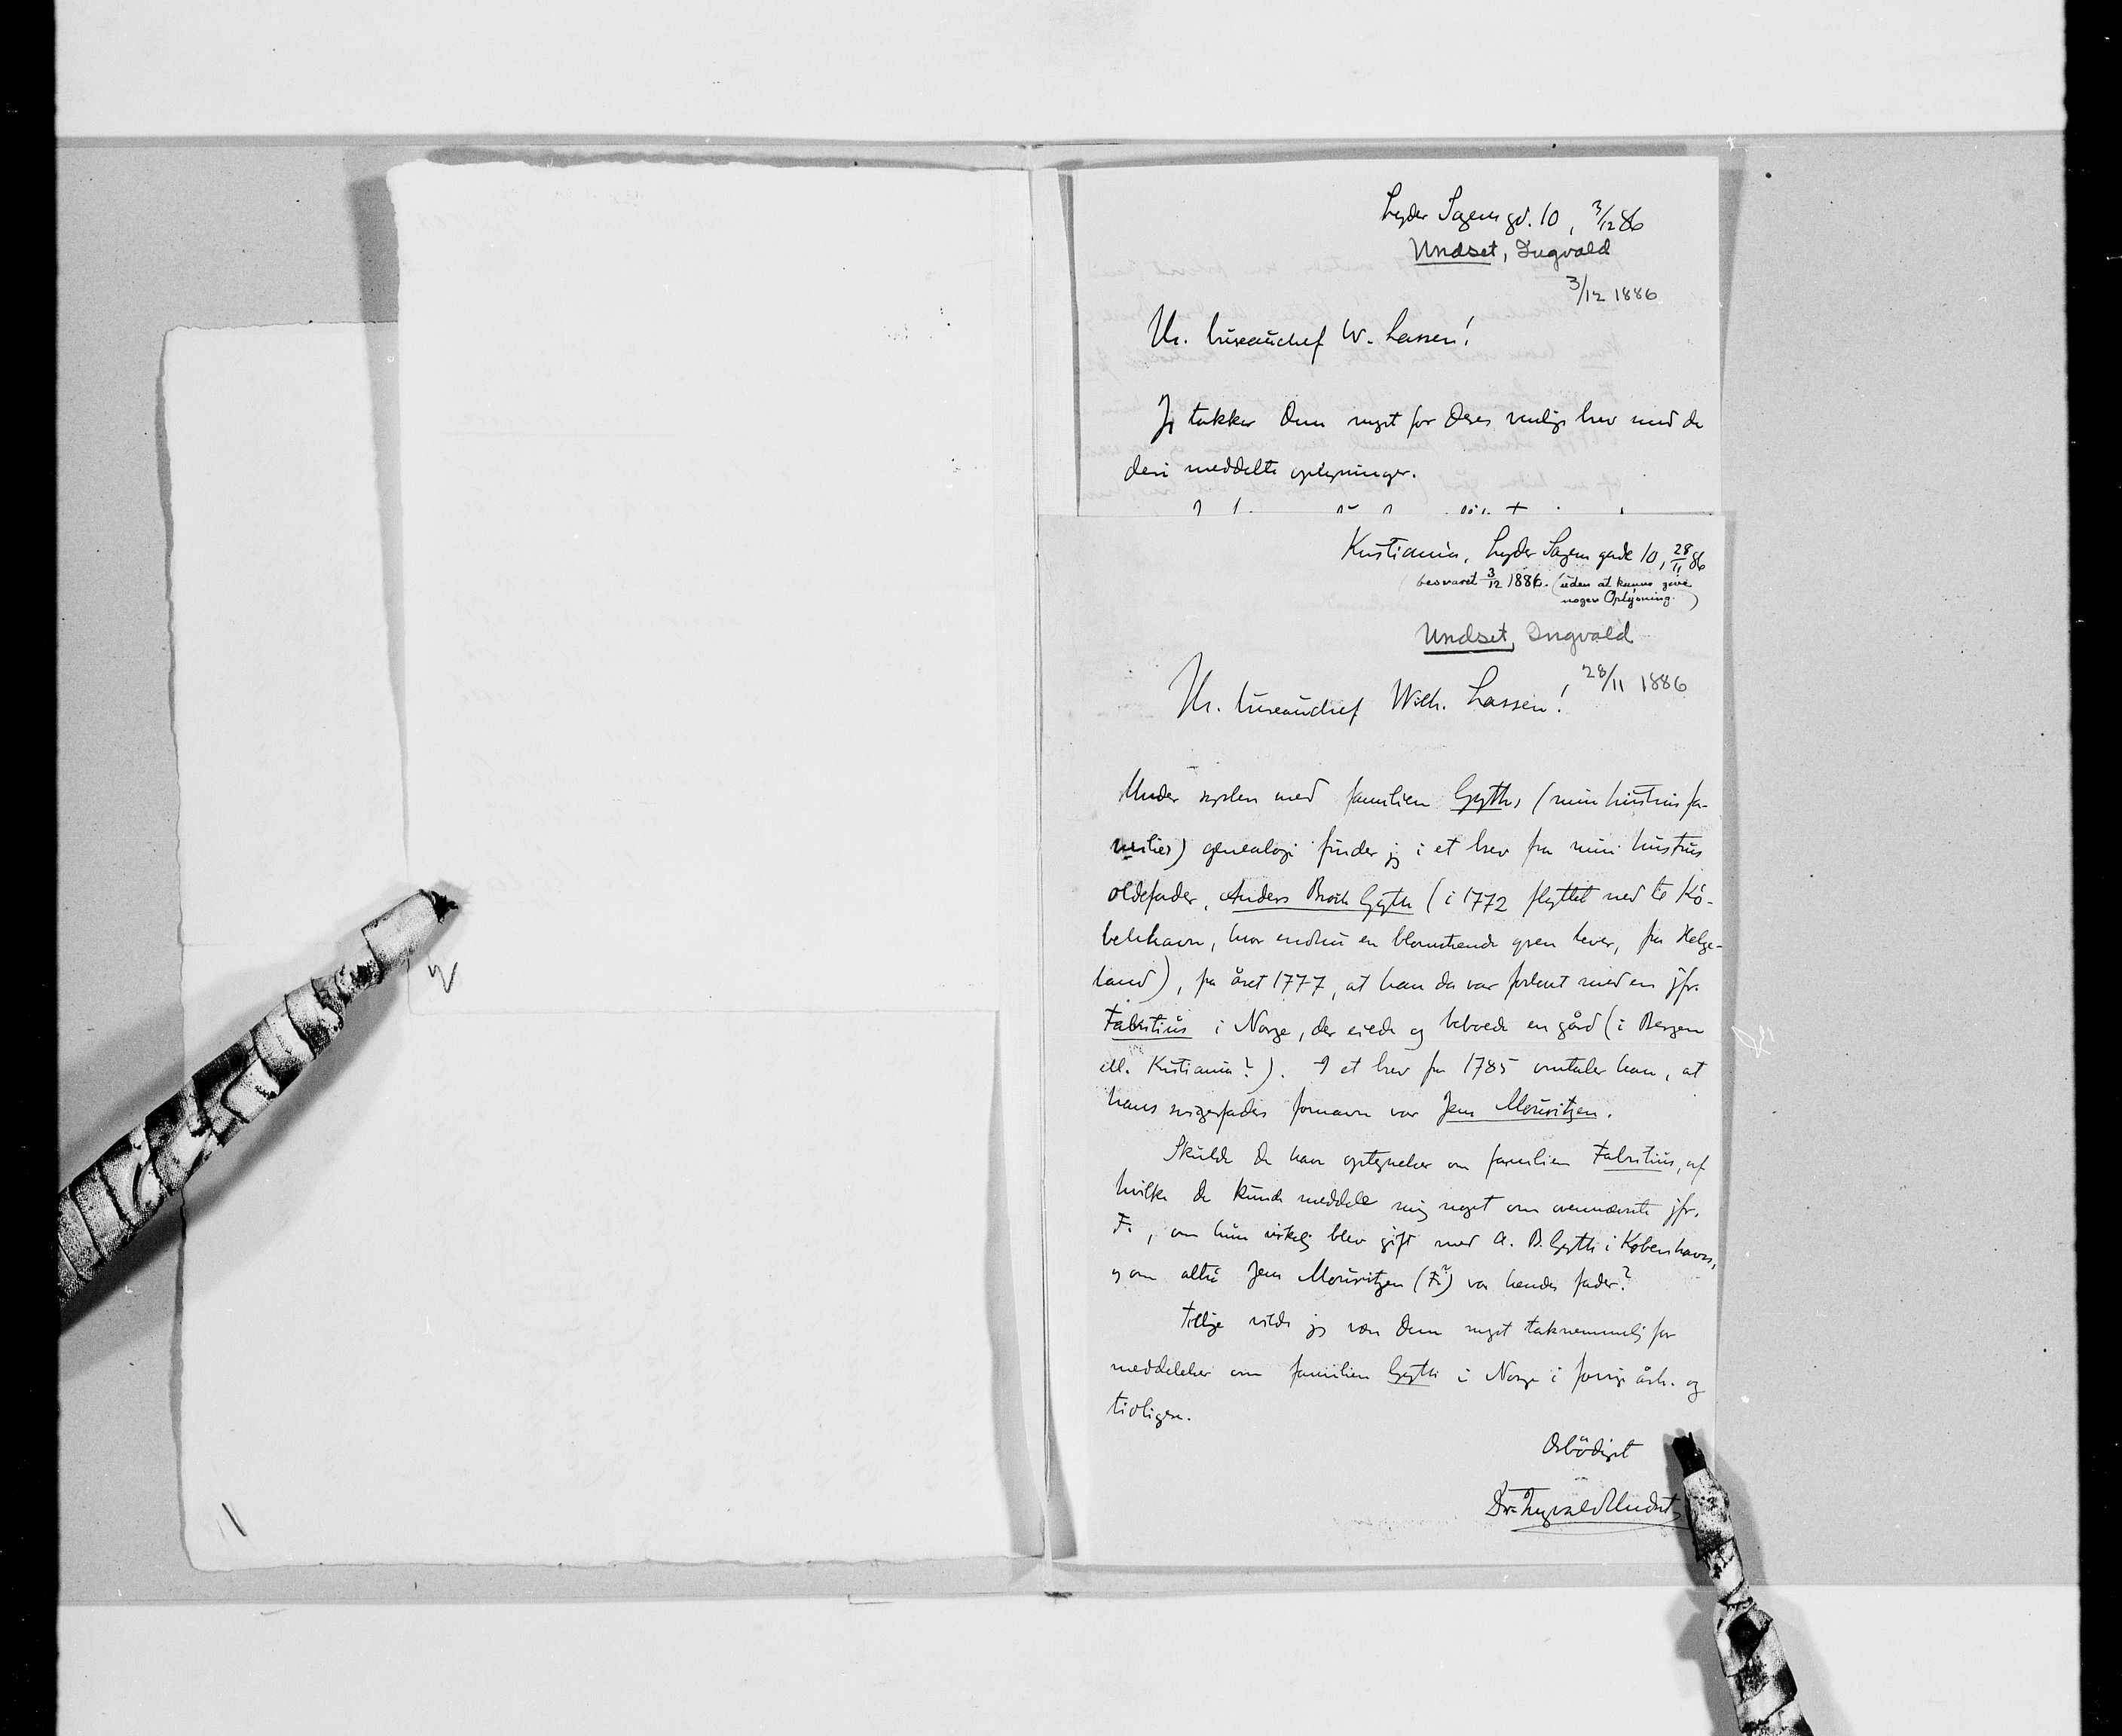 Lyder Sagens gd. 10, 3/12 86
Undset, Ingvald
3/12 1886
Hr. bureauchef W. Lassen!
Jeg takker Dem meget for Deres venlige brev med de
deri meddelte oplysninger.
Kristiania, Lyder Sagens gade 10, 28/11 86
besvaret 3/12 1886. (uden at kunne give
nogen Oplysning.)
Undset, Ingvald
28/11 1886
Hr. bureauchef Wilh. Lassen!
Under syslen med familien Gyths (min hustrus fa-
milies) genealogi finder jeg i et brev fra min hustrus
oldefader, Anders Broch Gyth (i 1772 flyttet ned til Kö-
benhavn, hvor endnu en blomstrende gren lever, fra Helge-
land), fra året 1777, at han da var forlovet med en jfr.
Fabritius i Norge, der eiede og beboede en gård (i Bergen
ell. Kristiania?). I et brev fra 1785 omtaler han, at
hans svigerfaders fornavn var Jens Mouritzen.
Skulde De have optegnelser om familien Fabritius, af
hvilke De kunde meddele mig noget om ovennævnte jfr.
F., om hun virkelig blev gift med A. B. Gyth i København,
og om altså Jens Mouritzen (F?) var hendes fader?
Tillige vilde jeg være Dem meget taknemmelig for
meddelelser om familien Gyth i Norge i forrige årh. og
tidligere.
Ærbödigst
Dr. Ingvald Undset